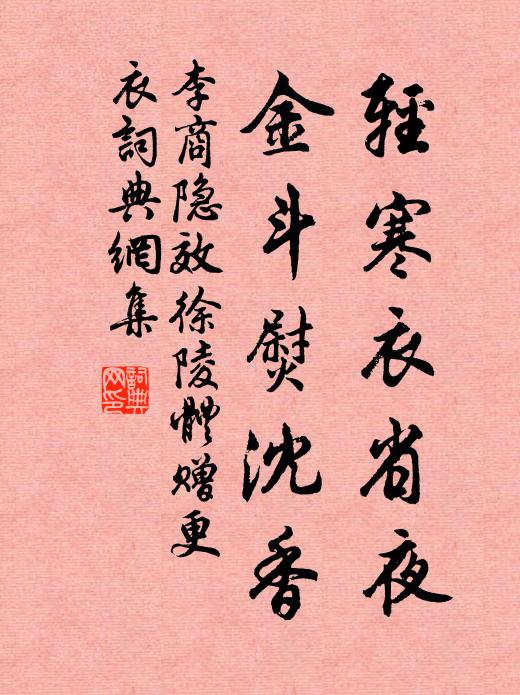 輕寒衣省夜
金斗熨沈香
李商隐效徐陵體赠更
衣詞典網集
詞典
网印